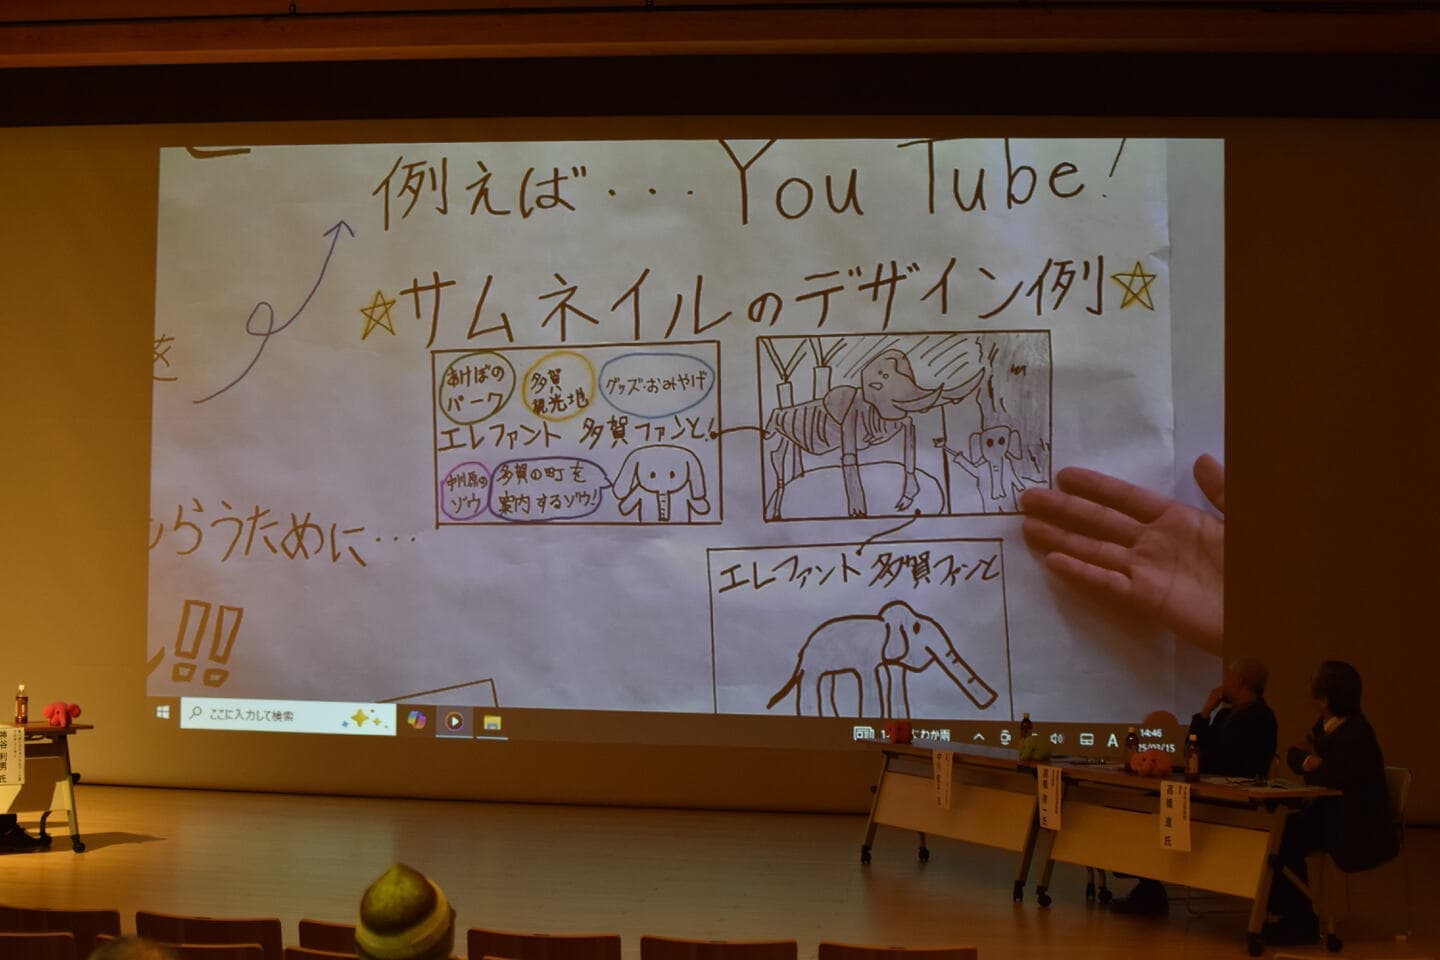 例えば・・・YouTube!
☆サムネイルのデザイン例☆
あけぼの
パーク
多賀
観光地
グッズ・おみやげ
エレファント 多賀ファンと!
中川原の
ゾウ
多賀の町を
案内するゾウ!
エレファント 多賀ファンと
を
もらうために・・・
!!
ここに入力して検索
にわか雨
A
14:46
25/03/15
神谷 利男 氏
高橋 啓一 氏
高橋 進 氏